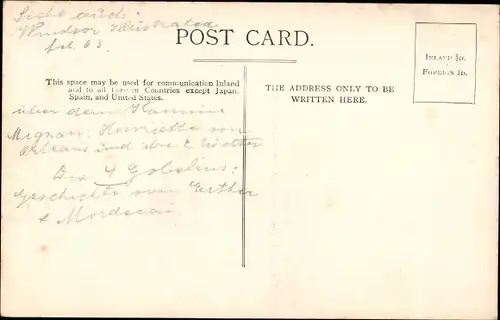 Siehe auch:
Windsor Illustrated
fol. 63.
POST CARD.
INLAND ½D.
FOREIGN 1D.
This space may be used for communication Inland
and to all Foreign Countries except Japan,
Spain, and United States.
THE ADDRESS ONLY TO BE
WRITTEN HERE.
über dem Kamine
Mignan: Henriette von
Orleans und ihre 2 Töchter
Die 4 Gobelins:
Geschichte von Esther
& Mordecai.